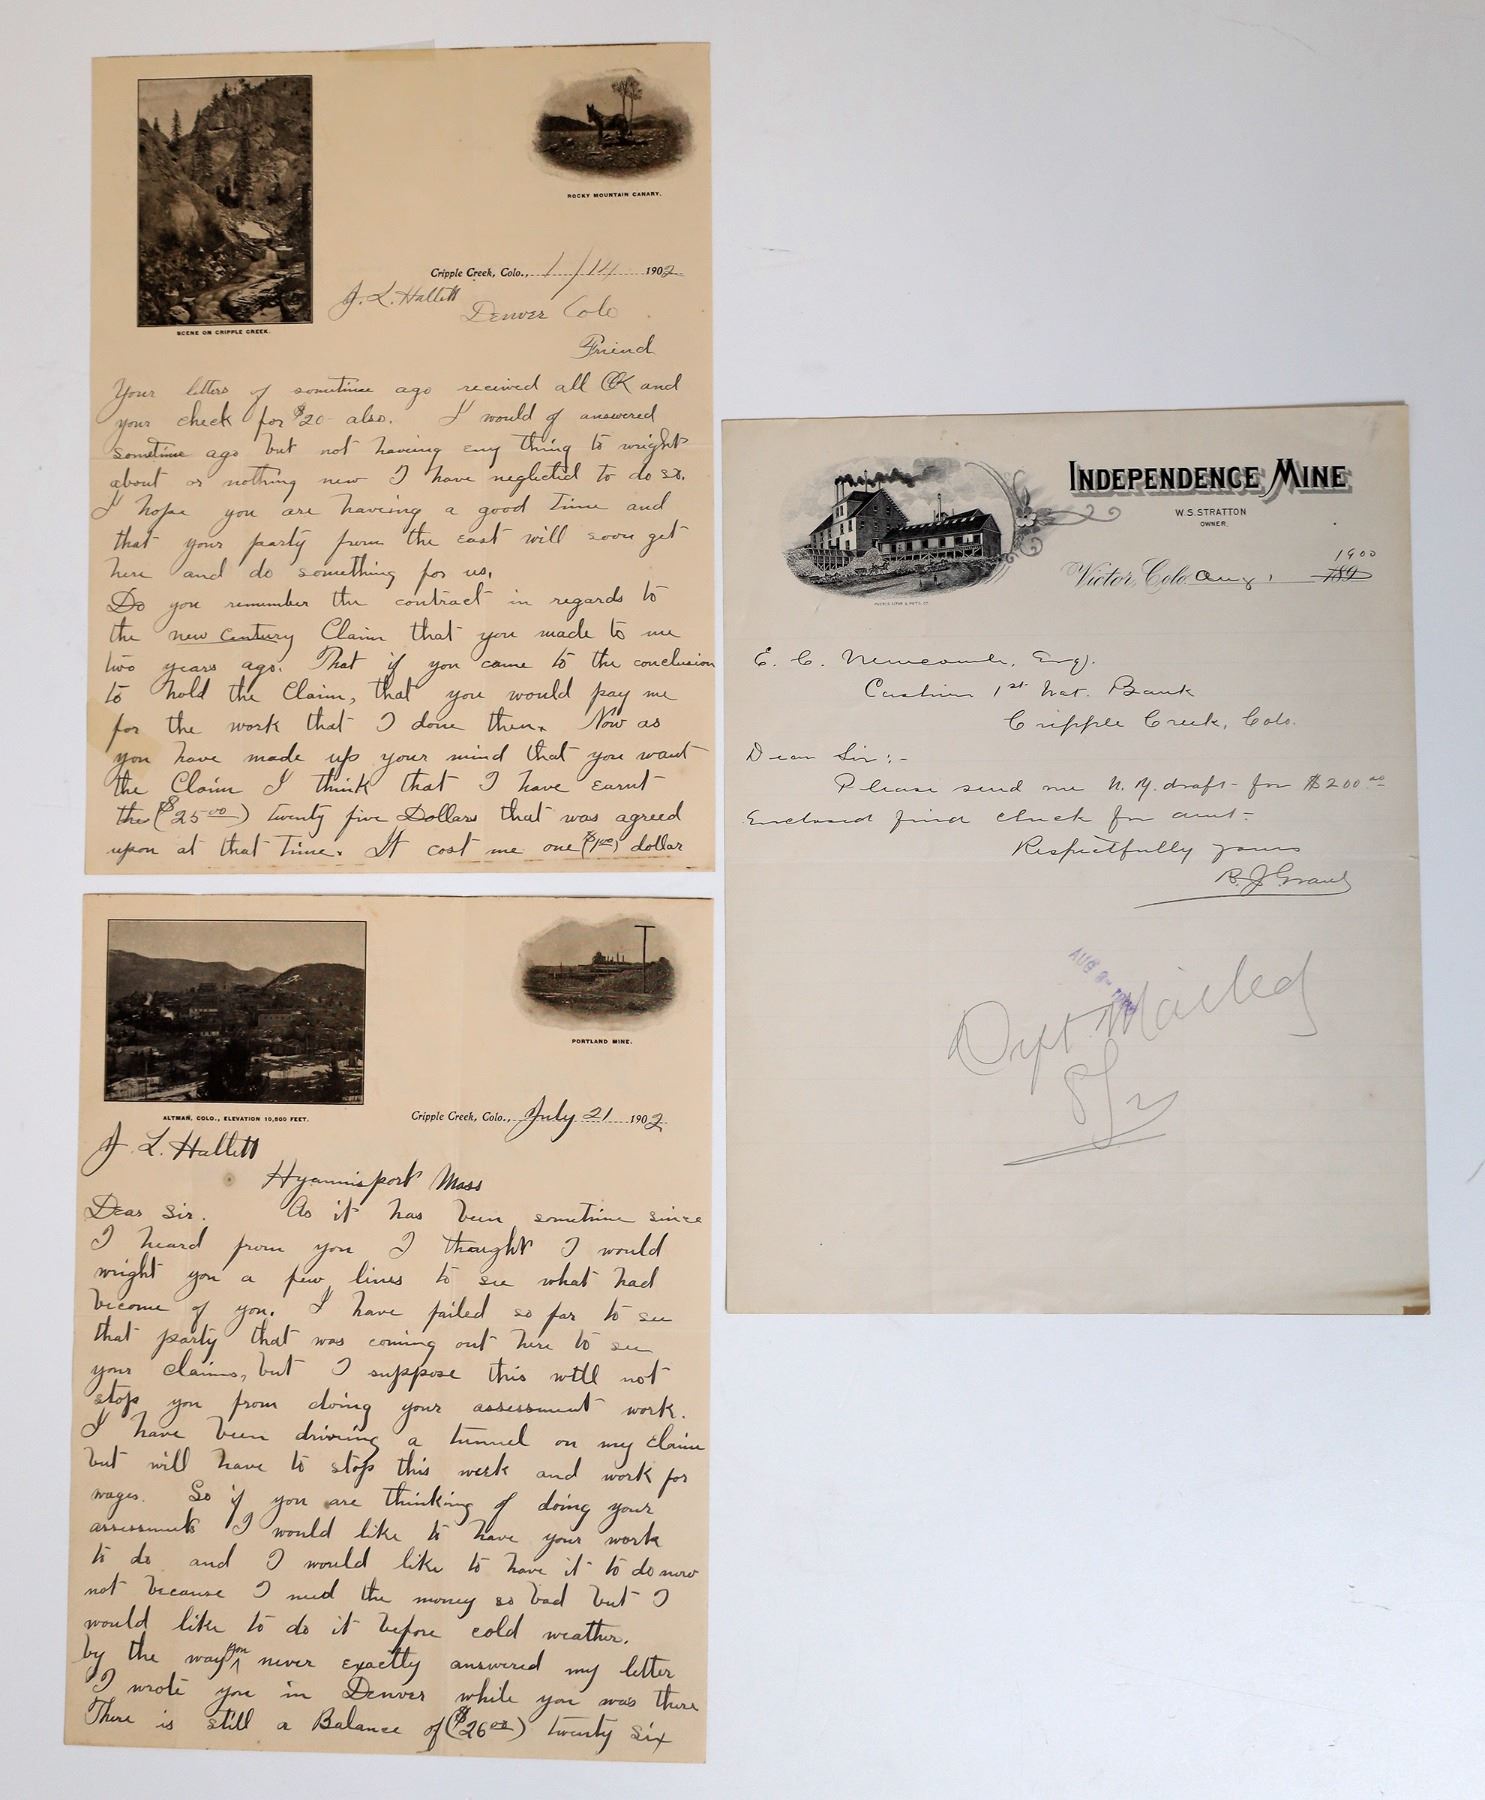 SCENE ON CRIPPLE CREEK.
ROCKY MOUNTAIN CANARY.
Cripple Creek, Colo., 1/14 1902
J. L. Hallett
Denver Colo
Friend
Your letters of sometime ago received all OK and
your check for $20- also. I would of answered
sometime ago but not haveing eny thing to wright
about or nothing new I have neglected to do so.
I hope you are haveing a good time and
that your party from the east will soon get
here and do something for us.
Do you remember the contract in regards to
the new Century Claim that you made to me
two years ago. That if you came to the conclusion
to hold the Claim, that you would pay me
for the work that I done then. Now as
you have made up your mind that you want
the Claim I think that I have earnt
the ($25 00) twenty five Dollars that was agreed
upon at that time. It cost me one ($1 00) dollar
ALTMAN, COLO., ELEVATION 10,500 FEET.
PORTLAND MINE.
Cripple Creek, Colo., July 21 1902
J. L. Hallett
Hyannisport Mass
Dear Sir. As it has been sometime since
I heard from you I thought I would
wright you a few lines to see what had
become of you. I have failed so far to see
that party that was coming out here to see
your claims, but I suppose this will not
stop you from doing your assessment work.
I have been driveing a tunnel on my claim
but will have to stop this week and work for
wages. So if you are thinking of doing your
assessments I would like to have your work
to do and I would like to have it to do now
not because I need the money so bad but I
would like to do it before cold weather.
by the way you never exactly answered my letter
I wrote you in Denver while you was there
There is still a Balance of ($26 00) twenty six
INDEPENDENCE MINE
W. S. STRATTON
OWNER.
1900
Victor, Colo. Aug 1 189
E. C. Newcomb, Esq.
Cashier 1st Nat. Bank
Cripple Creek, Colo.
Dear Sir:-
Please send me N.Y. draft for $200 00
Enclosed find check for amt.
Respectfully yours
AUG 2- 1900
Mailed